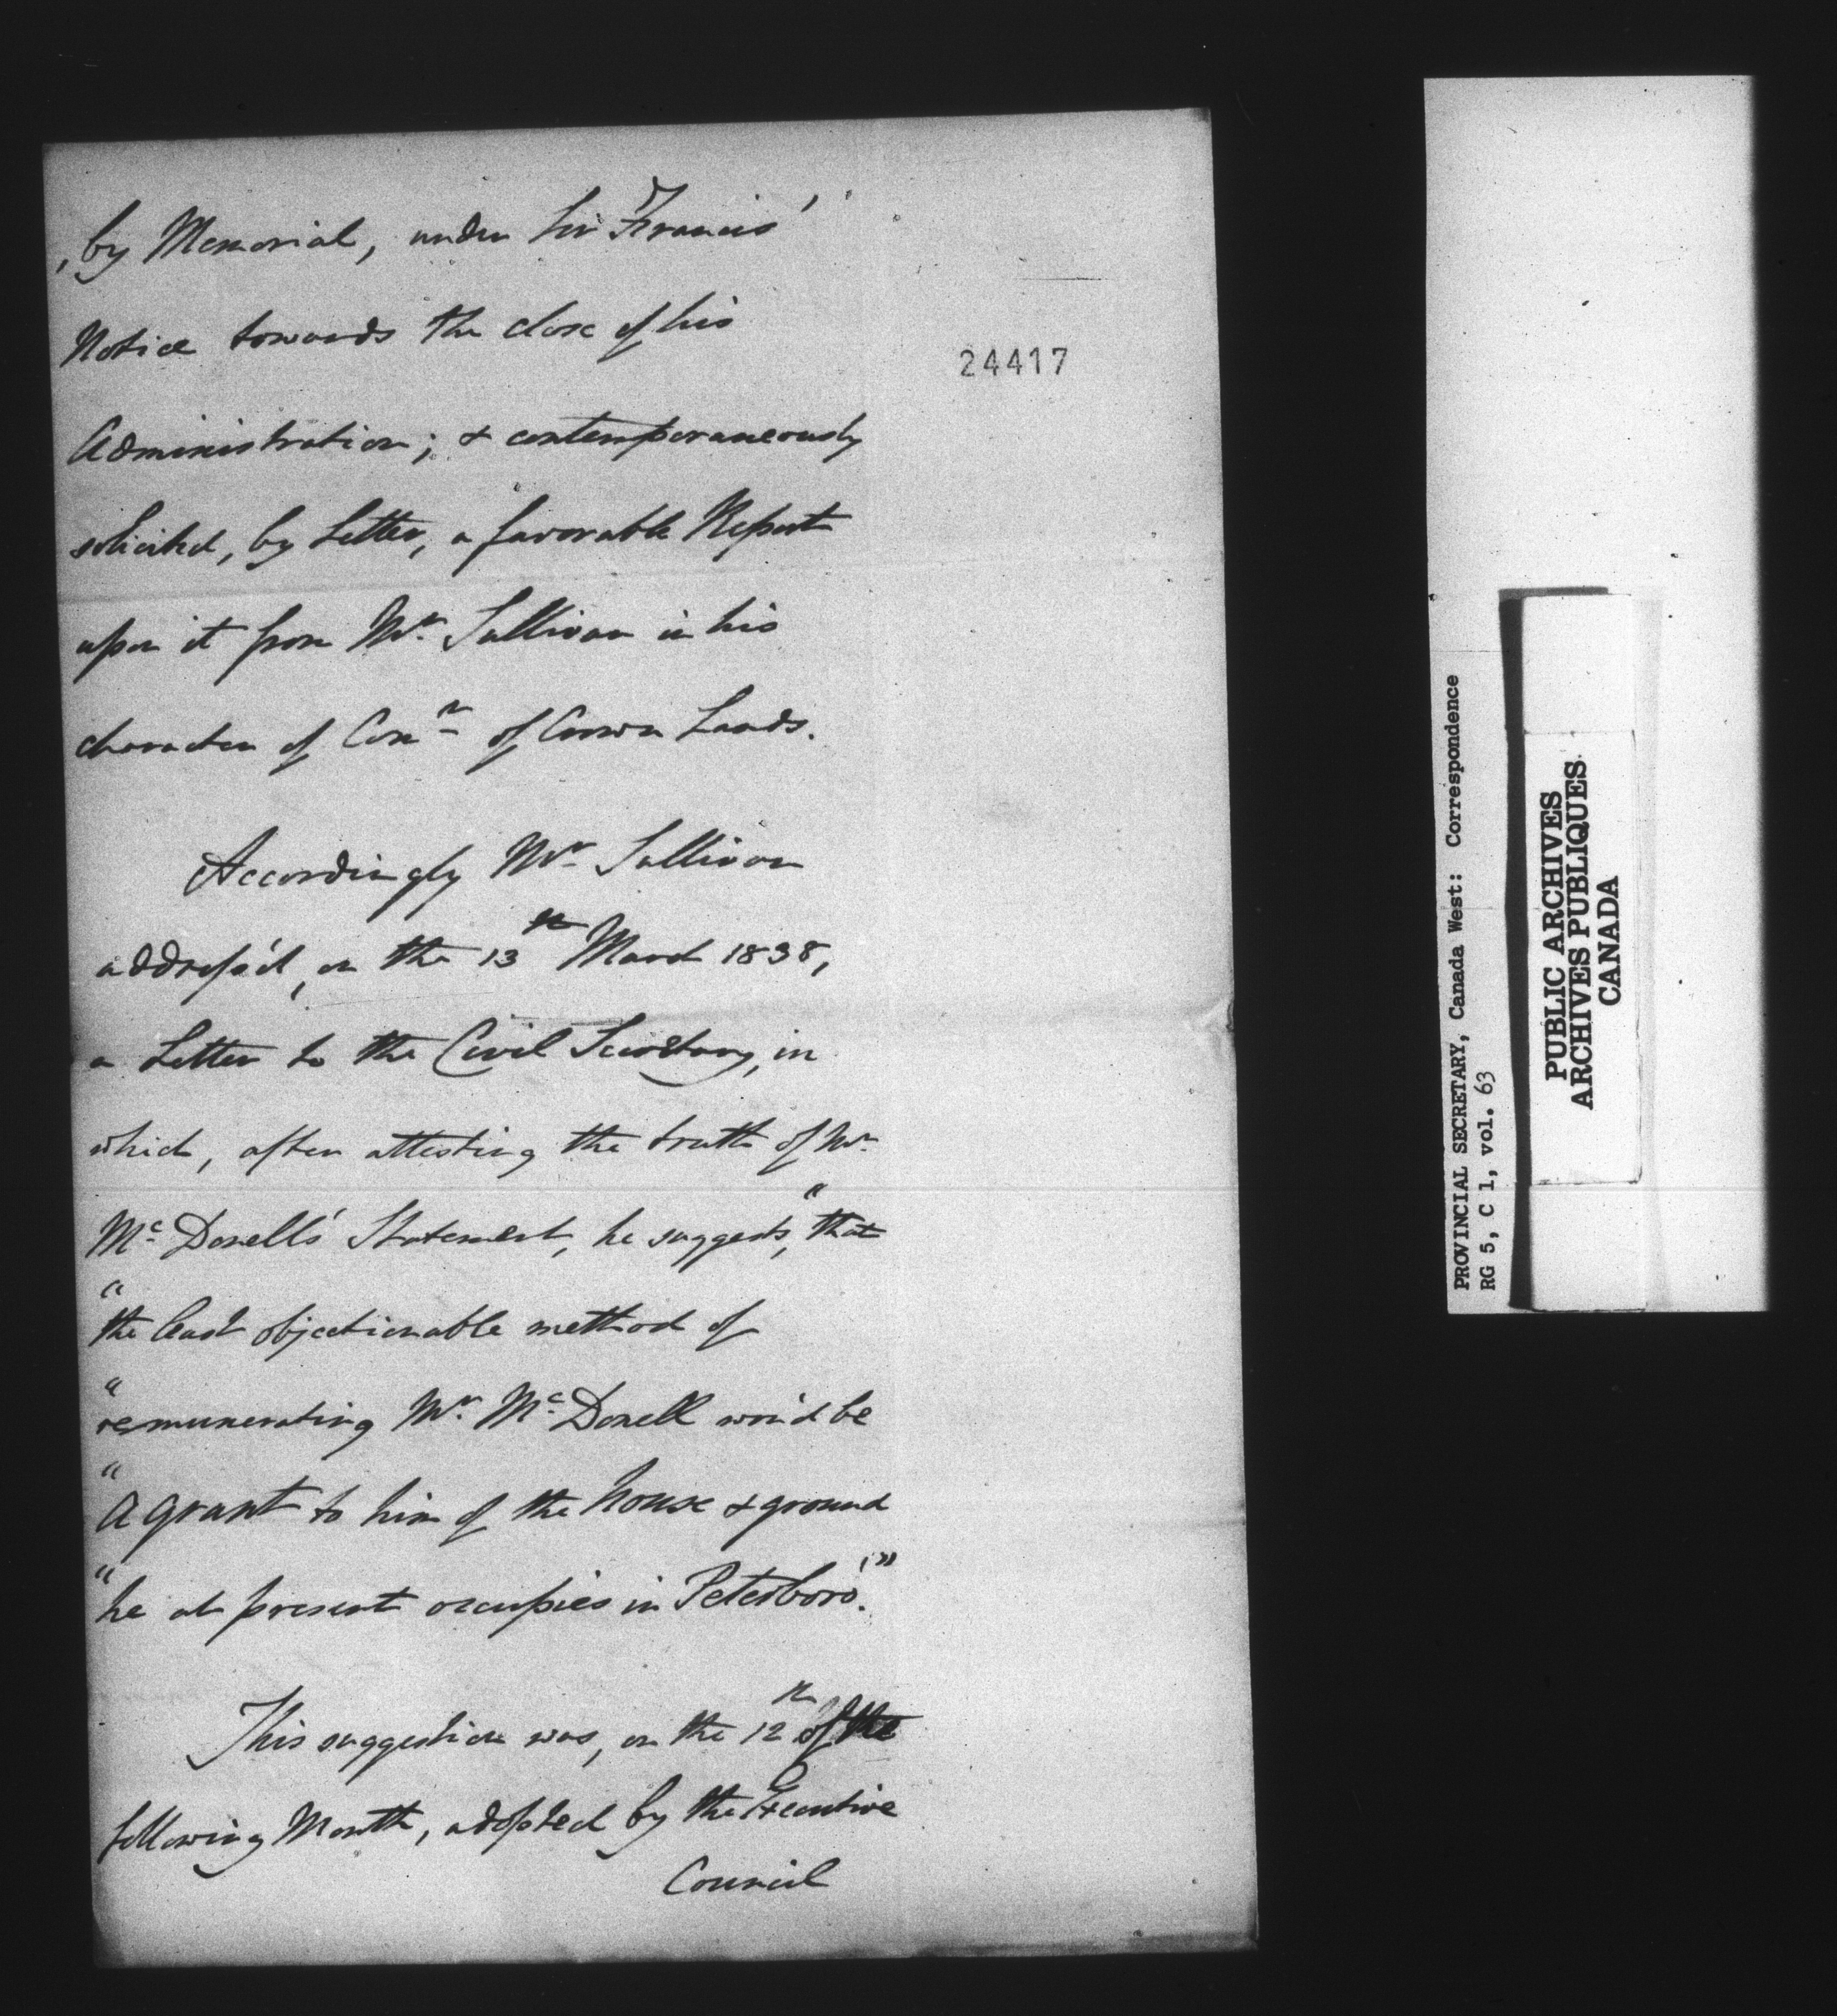 , by Memorial, under Sir Francis'
Notice towards the close of his
24417
Administration; & contemporaneously
solicited, by Letter, a favorable Report
upon it from Mr. Sullivan in his
character of Comr. of Crown Lands.
Accordingly Mr. Sullivan
address'd, on the 13th March 1838,
a Letter to the Civil Secretary, in
which, after attesting the truth of Mr.
Mc. Donell's Statement, he suggests, "that
"the least objectionable method of
"remunerating Mr. Mc. Donell wou'd be
"a grant to him of the house & ground
"he at present occupies in Peterboro'."
This suggestion was, on the 12th of the
following Month, adopted by the Executive
Council
PROVINCIAL SECRETARY, Canada West: Correspondence
RG 5, C 1, vol. 63
PUBLIC ARCHIVES
ARCHIVES PUBLIQUES
CANADA